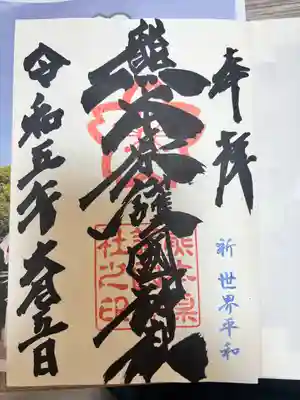 奉拝
祈 世界平和
熊本県護國神社
熊本県
護國神
社之印
令和五年六月五日